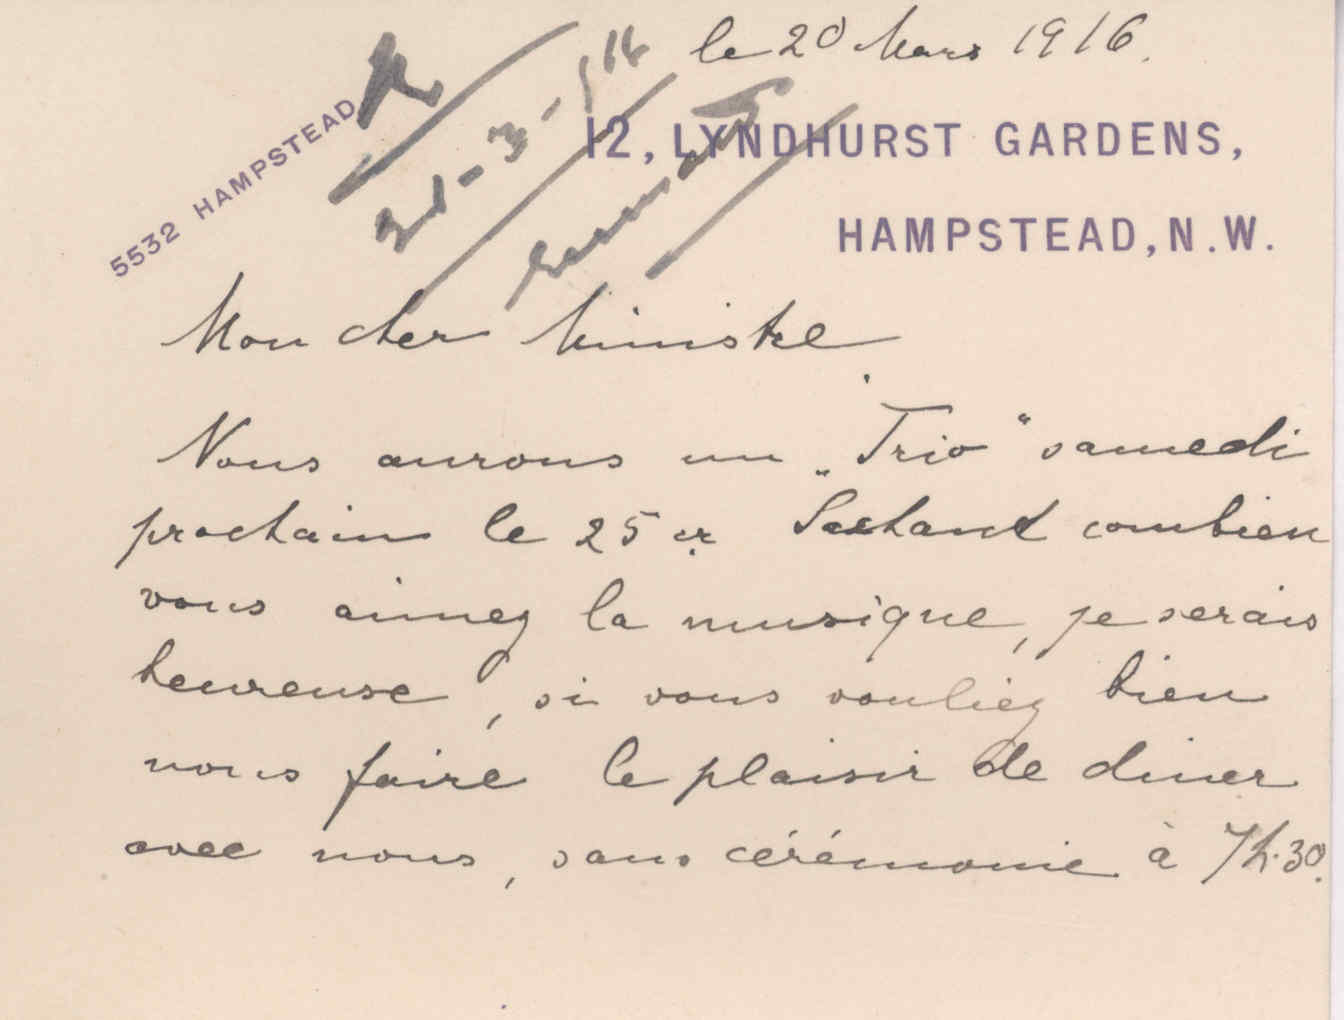 le 20 Mars 1916.
5532 HAMPSTEAD
R
21-3-16
12, LYNDHURST GARDENS,
HAMPSTEAD, N.W.
Mon cher Ministre
Nous aurons un „Trio" samedi
prochain le 25 cr. Sachant combien
vous aimez la musique, je serais
heureuse, si vous vouliez bien
nous faire le plaisir de diner
avec nous, sans cérémonie à 7h.30.